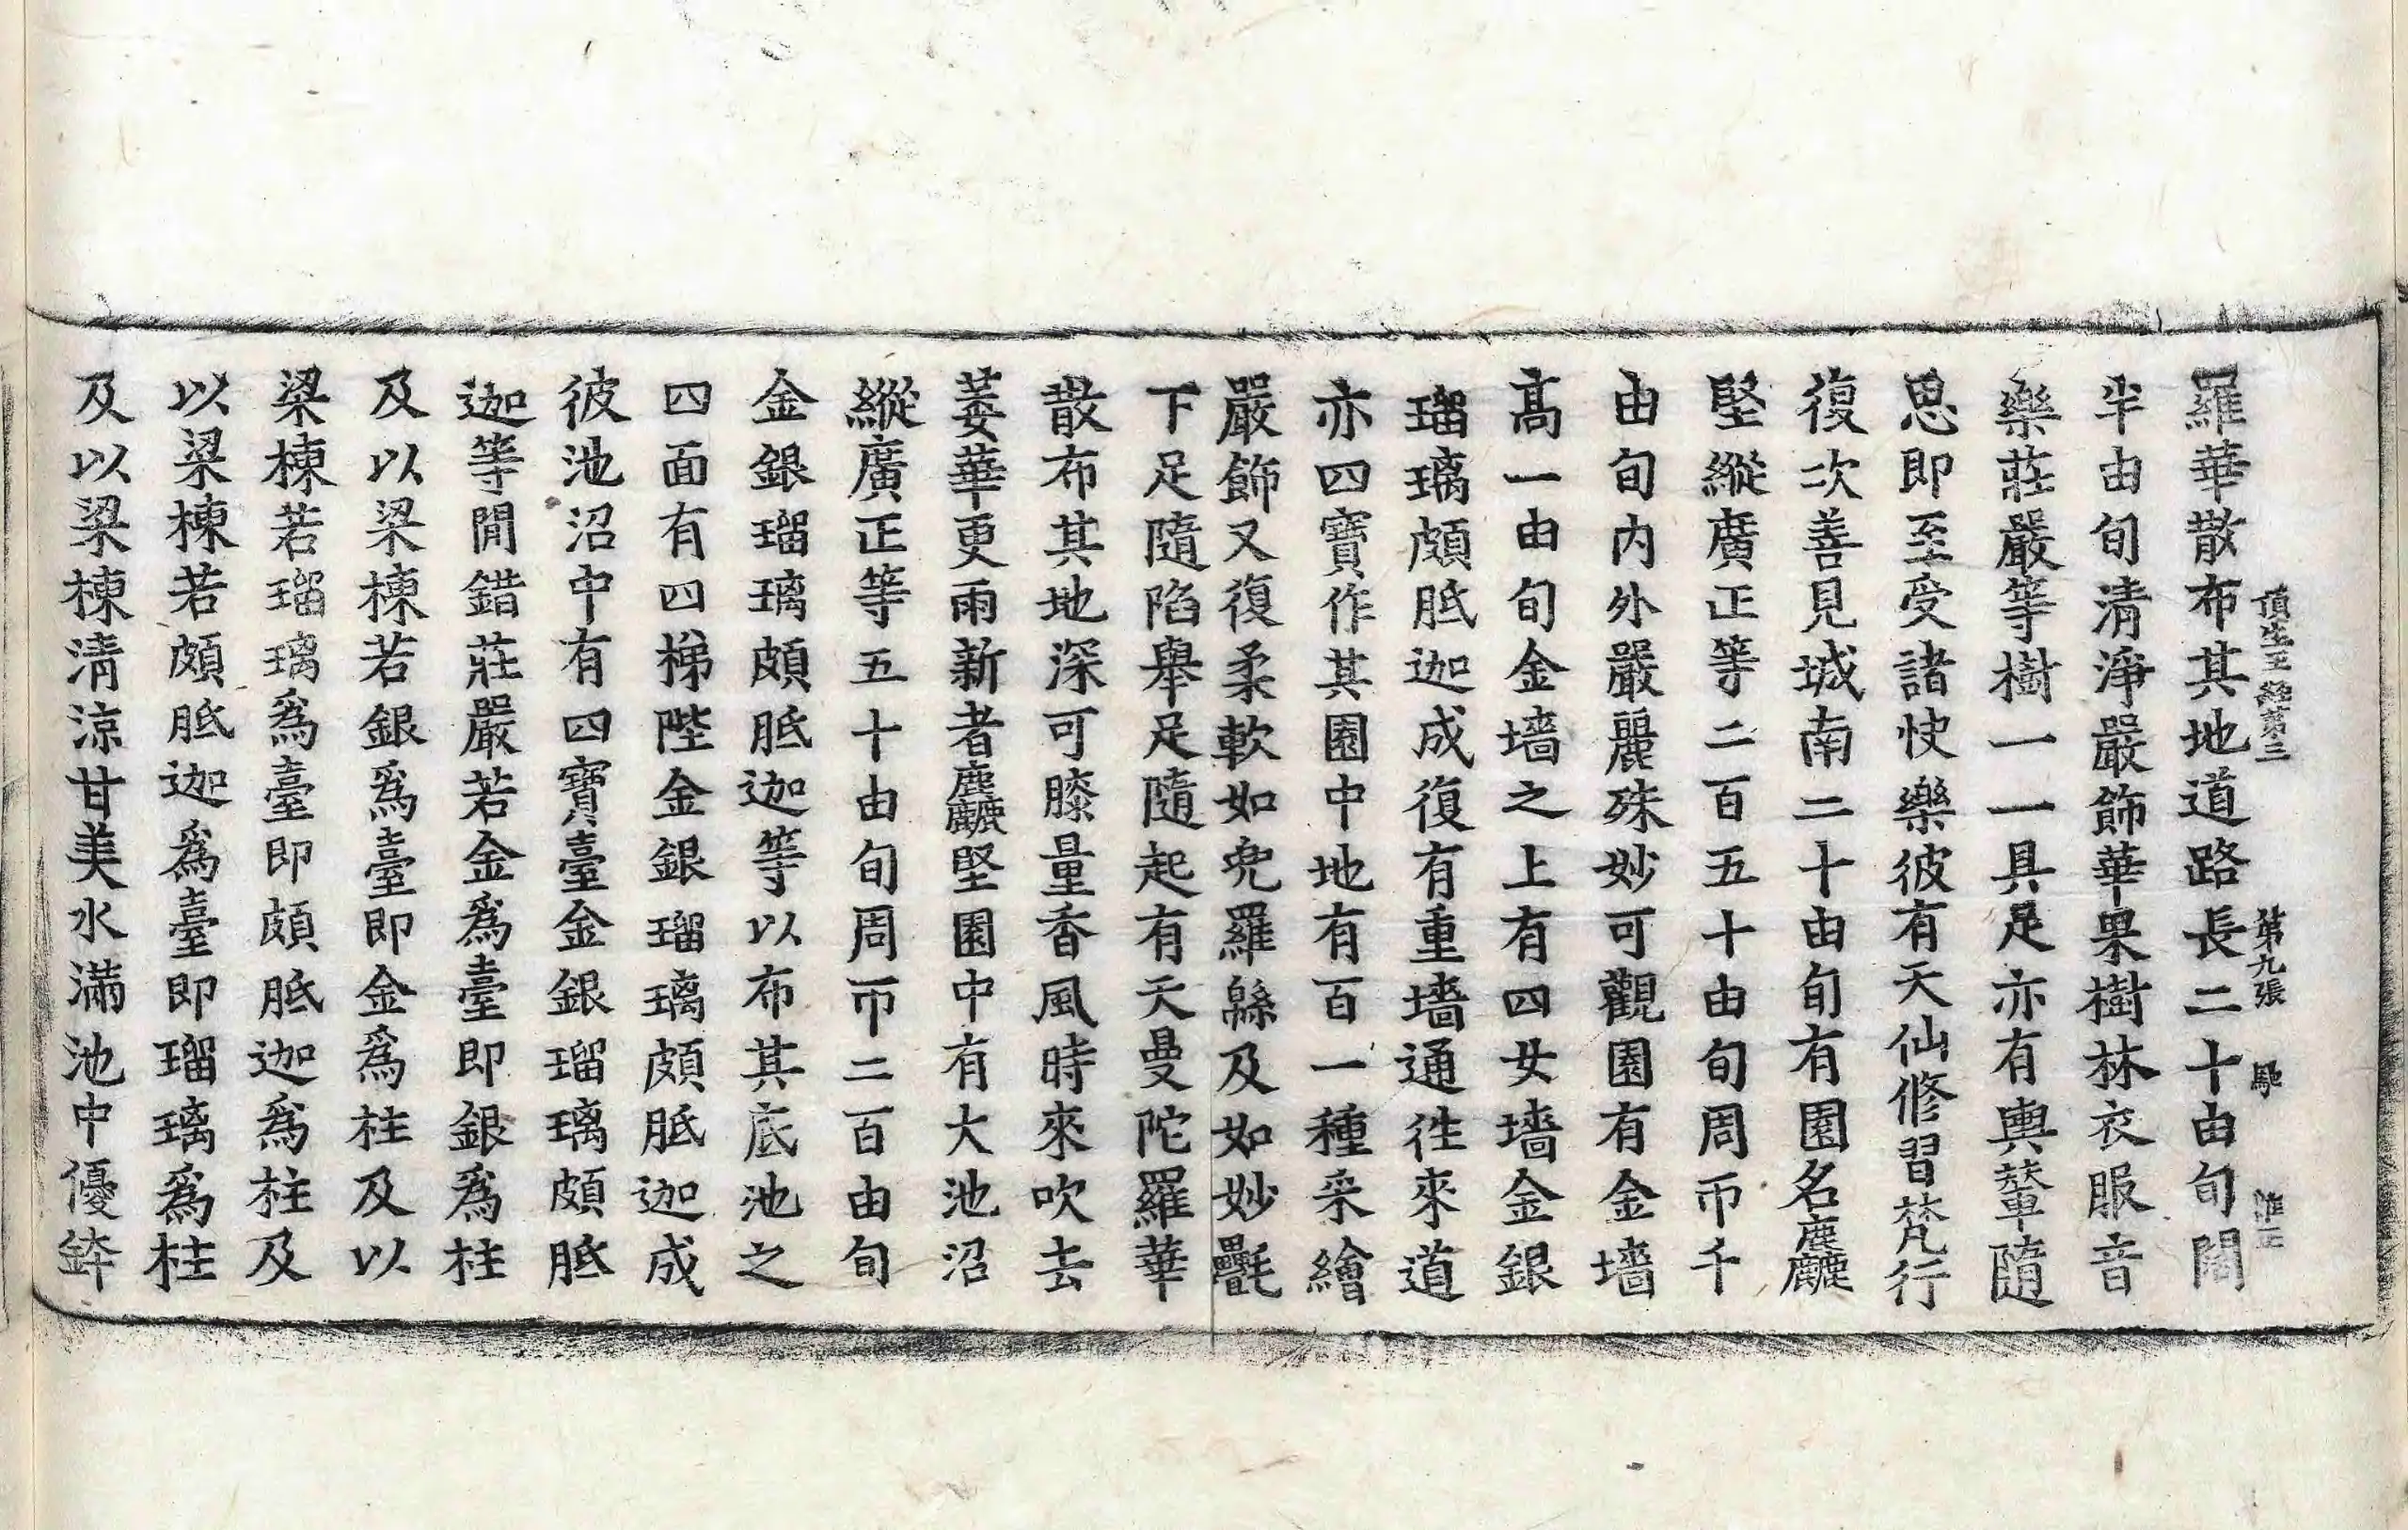 頂生王經第三 第九張 馳
羅華散布其地道路長二十由旬闊
半由旬清淨嚴飾華果樹林衣服音
樂莊嚴等樹一一具足亦有輿輦隨
思即至受諸快樂彼有天仙修習梵行
復次善見城南二十由旬有園名麤
堅縱廣正等二百五十由旬周帀千
由旬内外嚴麗殊妙可觀園有金墻
髙一由旬金墻之上有四女墻金銀
瑠璃頗胝迦成復有重墻通徃來道
亦四寶作其園中地有百一種采繪
嚴飾又復柔軟如兠羅緜及如妙㲲
下足隨陷舉足隨起有天曼陀羅華
散布其地深可膝量香風時來吹去
萎華更雨新者麤堅園中有大池沼
縱廣正等五十由旬周帀二百由旬
金銀瑠璃頗胝迦等以布其底池之
四面有四梯陛金銀瑠璃頗胝迦成
彼池沼中有四寶臺金銀瑠璃頗胝
迦等閒錯莊嚴若金爲臺即銀爲柱
及以梁棟若銀爲臺即金爲柱及以
梁棟若瑠璃爲臺即頗胝迦爲柱及
以梁棟若頗胝迦爲臺即瑠璃爲柱
及以梁棟清涼甘美水滿池中優鉢